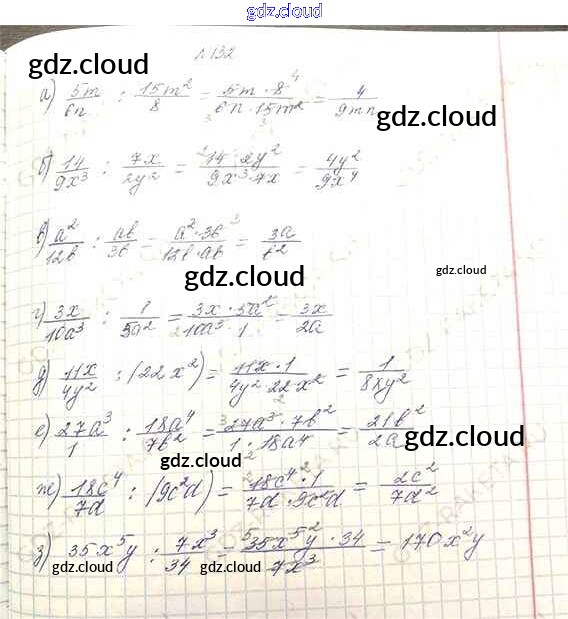 gdz.cloud
№132
gdz.cloud
а) 5m/6n : 15m²/8 = 5m·8/6n·15m² = 4/9mn
gdz.cloud
б) 14/9x³ : 7x/2y² = 14·2y²/9x³·7x = 4y²/9x⁴
в) a²/12b : ab/3b = a²·3b/12b·ab = 3a/b²
gdz.cloud
gdz.cloud
г) 3x/10a³ : 1/5a² = 3x·5a²/10a³·1 = 3x/2a
д) 11x/4y² : (22x²) = 11x·1/4y²·22x² = 1/8xy²
е) 27a³/1 : 18a⁴/7b² = 27a³·7b²/1·18a⁴ = 21b²/2a
gdz.cloud
gdz.cloud
ж) 18c⁴/7d : (9c²d) = 18c⁴·1/7d·9c²d = 2c²/7d²
з) 35x⁵y : 7x³/34 = 35x⁵y·34/7x³ = 170x²y
gdz.cloud
gdz.cloud
gdz.cloud
gdz.cloud